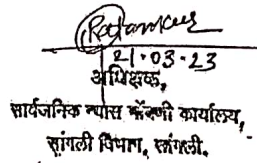 21-03-23
अधिक्षक,
सार्वजनिक न्यास नोंदणी कार्यालय,
सांगली विभाग, सांगली.